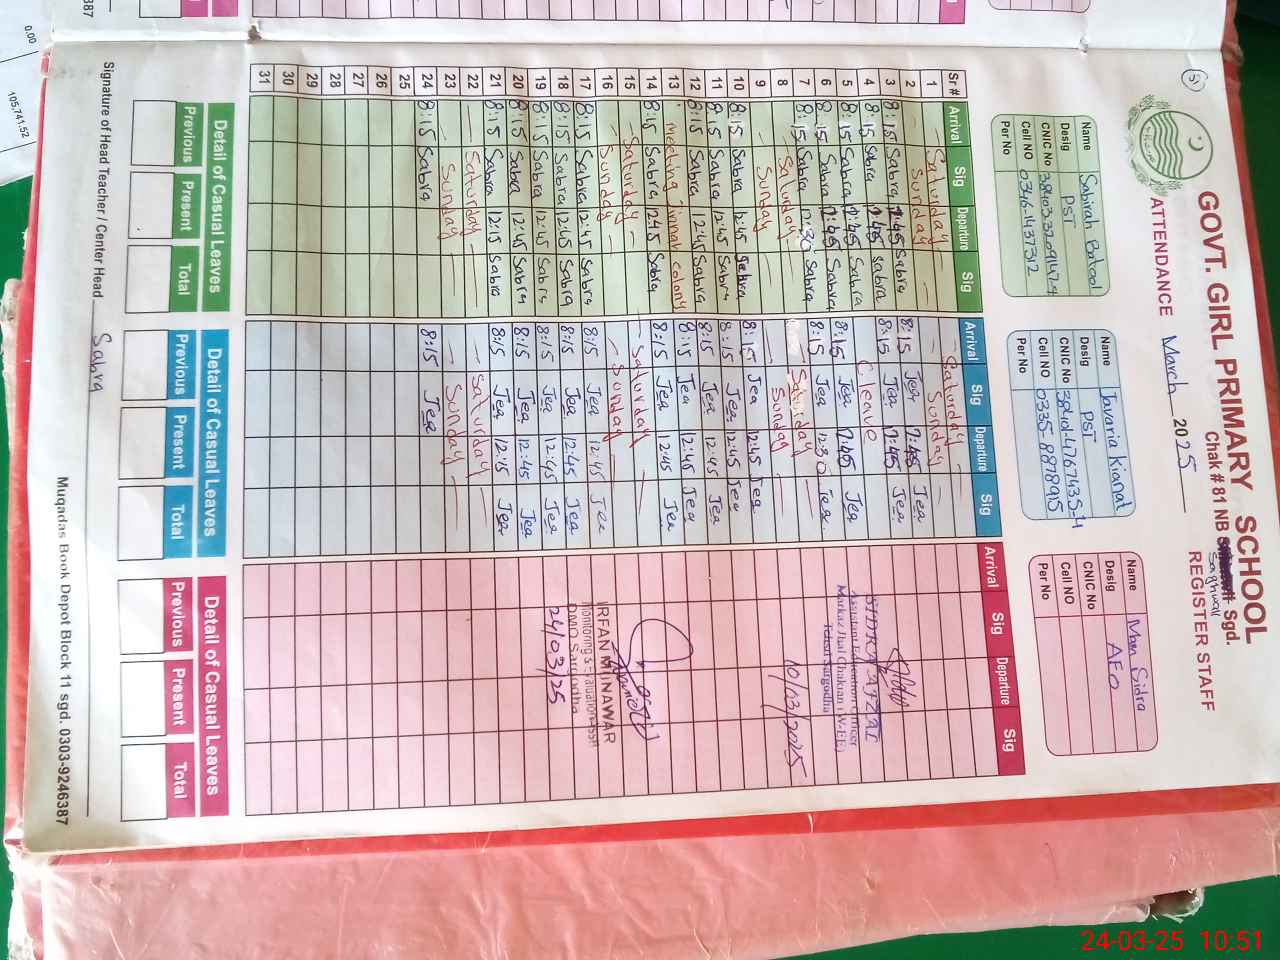 GOVT. GIRL PRIMARY SCHOOL
Chak # 81 NB Sgd.
Saghwal
ATTENDANCE March 2025 REGISTER STAFF
Name Sabirah Batool
Desig PST
CNIC No
Cell NO 0346-1437312
Per No
Name Javaria Kianat
Desig PST
CNIC No 38401-4767435-4
Cell NO 0335-8878915
Per No
Name Mam Sidra
Desig AEO
CNIC No
Cell NO
Per No
Sr# Arrival Sig Departure Sig Arrival Sig Departure Sig Arrival Sig Departure Sig
1 Saturday Saturday
2 Sunday Sunday
3 8:15 Sabra 12:45 Sabra 8:15 Jea 12:45 Jea
4 8:15 Sabra 12:45 Sabra 8:15 Jea 12:45 Jea
5 8:15 Sabra 12:45 Sabra C leave
6 8:15 Sabra 12:45 Sabra 8:15 Jea 12:45 Jea
7 8:15 Sabra 12:30 Sabra 8:15 Jea 12:30 Jea
8 Saturday Saturday
9 Sunday Sunday
10 8:15 Sabra 12:45 Sabra 8:15 Jea 12:45 Jea
11 8:15 Sabra 12:45 Sabra 8:15 Jea 12:45 Jea
12 8:15 Sabra 12:45 Sabra 8:15 Jea 12:45 Jea
13 meeting Jinnah colony 8:15 Jea 12:45 Jea
14 8:15 Sabra 12:45 Sabra 8:15 Jea 12:45 Jea
15 Saturday Saturday
16 Sunday Sunday
17 8:15 Sabra 12:45 Sabra 8:15 Jea 12:45 Jea
18 8:15 Sabra 12:45 Sabra 8:15 Jea 12:45 Jea
19 8:15 Sabra 12:45 Sabra 8:15 Jea 12:45 Jea
20 8:15 Sabra 12:45 Sabra 8:15 Jea 12:45 Jea
21 8:15 Sabra 12:15 Sabra 8:15 Jea 12:15 Jea
22 Saturday Saturday
23 Sunday Sunday
24 8:15 Sabra 8:15 Jea
25
26
27
28
29
30
31
SIDRA AFZAL
Assistant Education Officer
Markaz Jhal Chakian (W-EE)
Tehsil Sargodha
10/03/2025
IRFAN MUNAWAR
Monitoring & Evaluation Asstt
DMO Sargodha
24/03/25
Detail of Casual Leaves
Previous Present Total
Detail of Casual Leaves
Previous Present Total
Detail of Casual Leaves
Previous Present Total
Signature of Head Teacher / Center Head Sabra
Muqadas Book Depot Block 11 sgd. 0303-9246387
0.00
105,741.52
387
24-03-25 10:51